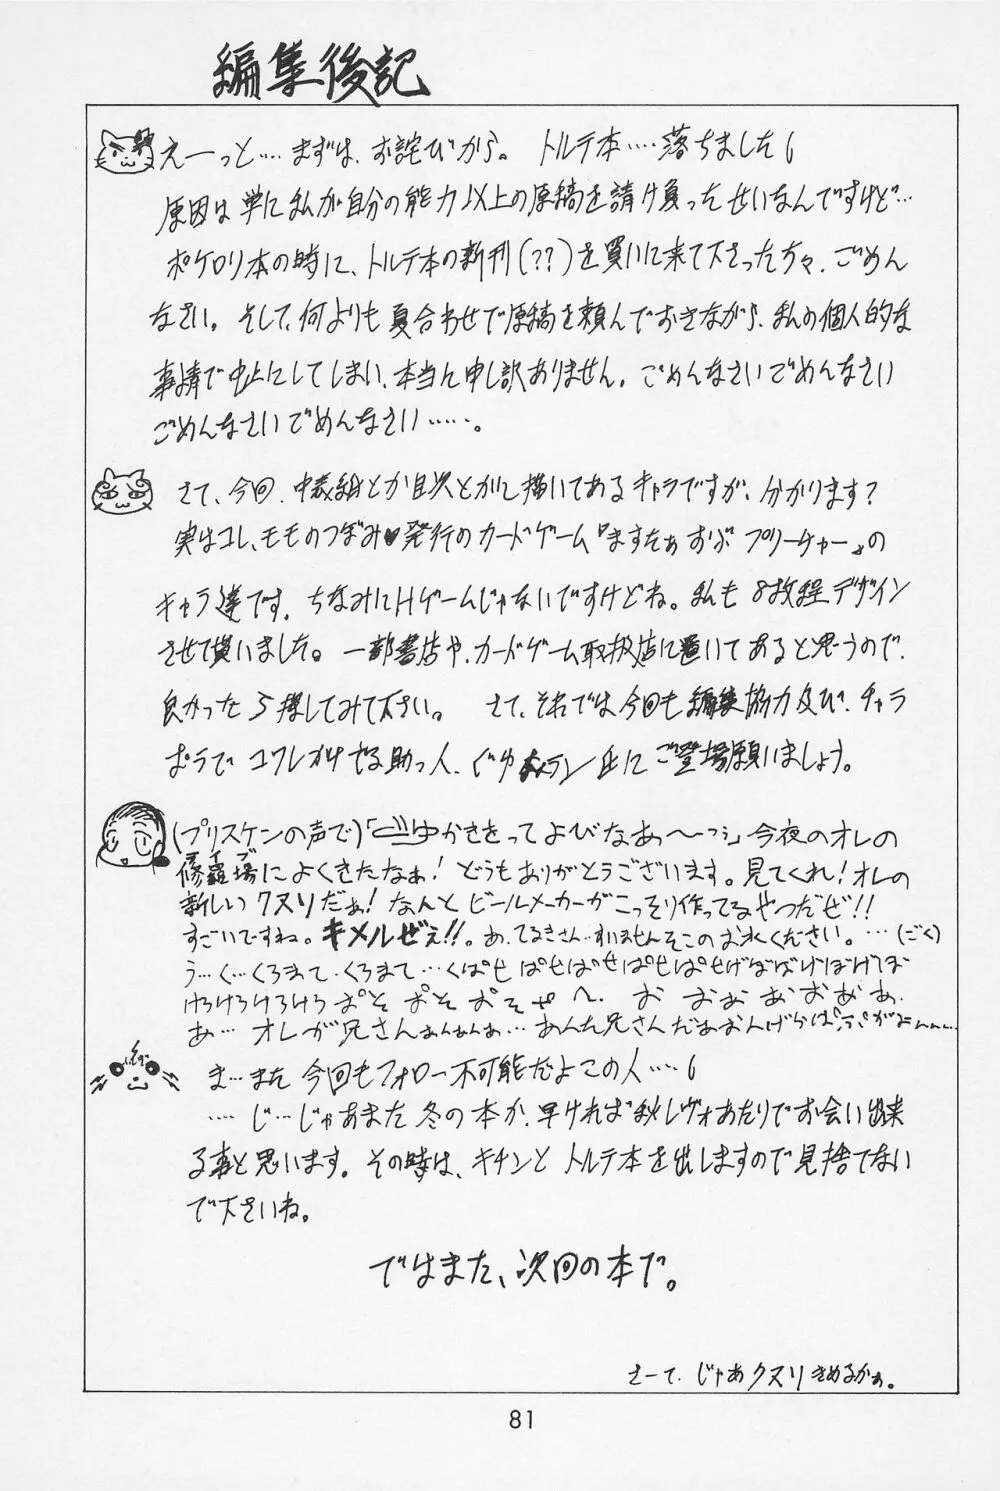 編集後記
えーっと…まずは、お詫びから。 トルテ本‥‥落ちました
原因は単に私が自分の能力以上の原稿を請け負ったせいなんですけど…
ポケロリ本の時に、トルテ本の新刊(??)を買いに来て下さった方々、ごめん
なさい。そして、何よりも夏合わせで原稿を頼んでおきながら、私の個人的な
事情で中止にしてしまい、本当に申し訳ありません。ごめんなさいごめんなさい
ごめんなさいごめんなさい‥‥‥。
さて、今回、中表紙とか目次とかに描いてあるキャラですが、分かります?
実はコレ、モモのつぼみ♥発行のカードゲーム『ますたぁおぶ プリーチャー』の
キャラ達です。ちなみにHゲームじゃないですけどね。私も8枚程デザイン
させて貰いました。一部書店や、カードゲーム取扱店に置いてあると思うので、
良かったら探してみて下さい。 さて、それでは今回も編集協力及び、チャラ
ポラでコワレかけてる助っ人、ぐゆ ラン氏にご登場願いましょう。
(プリスケンの声で)「 ゆかさきをってよびなあ〜っ」今夜のオレの
修羅場によくきたなぁ!どうもありがとうございます。見てくれ!オレの
新しいクスリだぁ!なんとビールメーカーがこっそり作ってるやつだぜ!!
すごいですね。キメルぜぇ!!。あ、てるきさん…すいませんそこのお水ください。…(ごく)
う…く…くろまて、くろまて…くぱせぱせばせぱせぱせげばばけぼげぼ
けろけろけろけろおそおそおそせ〜、お おおおおおああ、
あ… オレが兄さんぁんぁんぁ…あんた兄さんだぁ
ま…また今回もフォロー不可能だよこの人‥‥
…、じ…じゃあまた冬の本か、早ければ秋レヴォあたりでお会い出来
る事と思います。その時は、キチンとトルテ本を出しますので見捨てない
で下さいね。
ではまた、次回の本で。
さーて、じゃあクスリきめるかぁ。
81